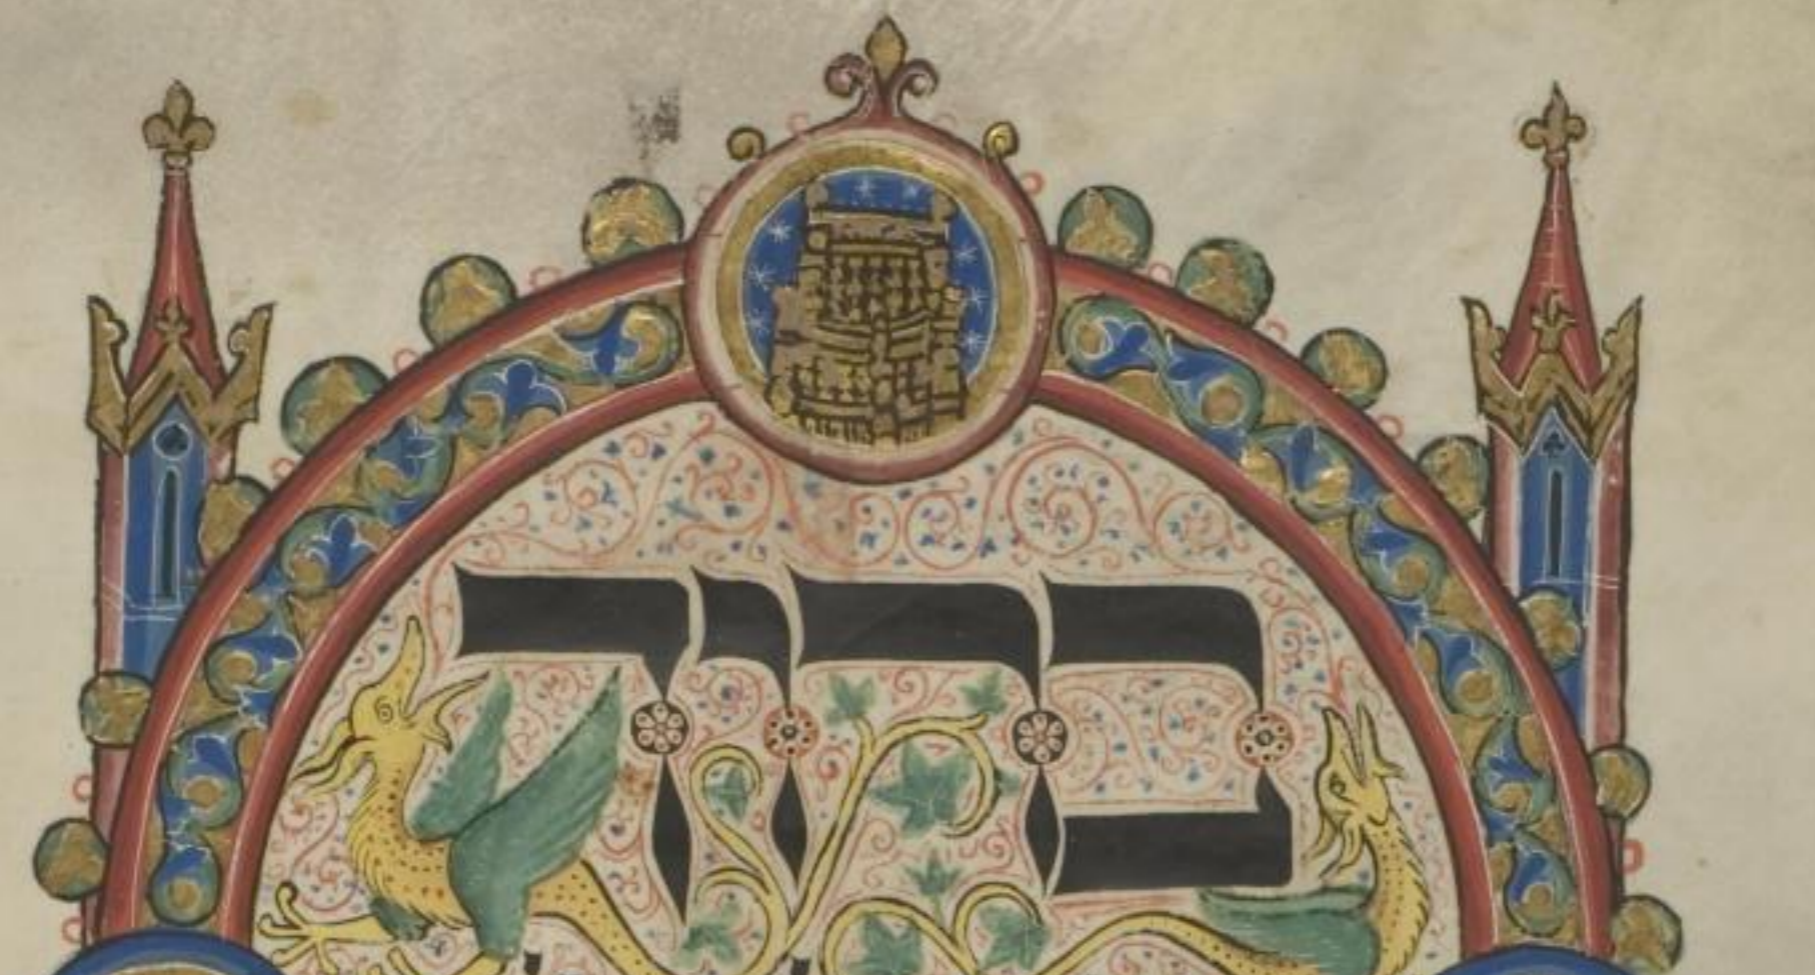 ברוך